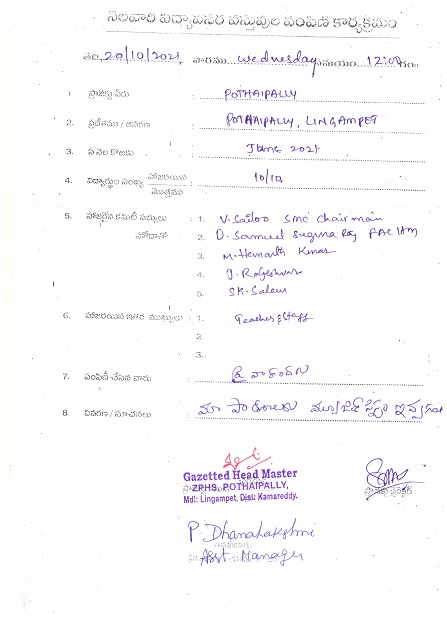 నెలవారి విద్యావసర వస్తువుల పంపిణి కార్యక్రమం
తేది. 20/10/2021 వారము... Wednesday సమయం. 12:00 గం.
1 ప్రాజెక్టు పేరు POTHAIPALLY
2. ప్రదేశము / ఆవరణ POTHAIPALLY, LINGAMPET
3. ఏ నెల కొరకు June 2021
4. విద్యార్థుల సంఖ్య హాజరయిన మొత్తము 10/10
5. హాజరైన కమిటీ సభ్యులు 1. V. Sailoo SMC Chairman
హోదాతో 2. D. Samuel Suguna Raj FAC HM
3. M. Hemanth Kumar
4. J. Rajeshwar
5. SK. Saleem
6. హాజరయిన ఇతర ముఖ్యులు : 1. Teacher & Staff
2.
3..
7. పంపిణీ చేసిన వారు
8. వివరణ / సూచనలు మా పాఠశాలకు
Gazetted Head Master
ZPHS, POTHAIPALLY,
Mdl: Lingampet, Dist: Kamareddy.
P. Dhanalakshmi
Asst Manager